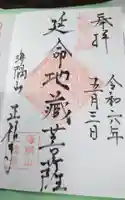 奉拝
令和六年
五月三日
延命地蔵菩薩
海隅山
正